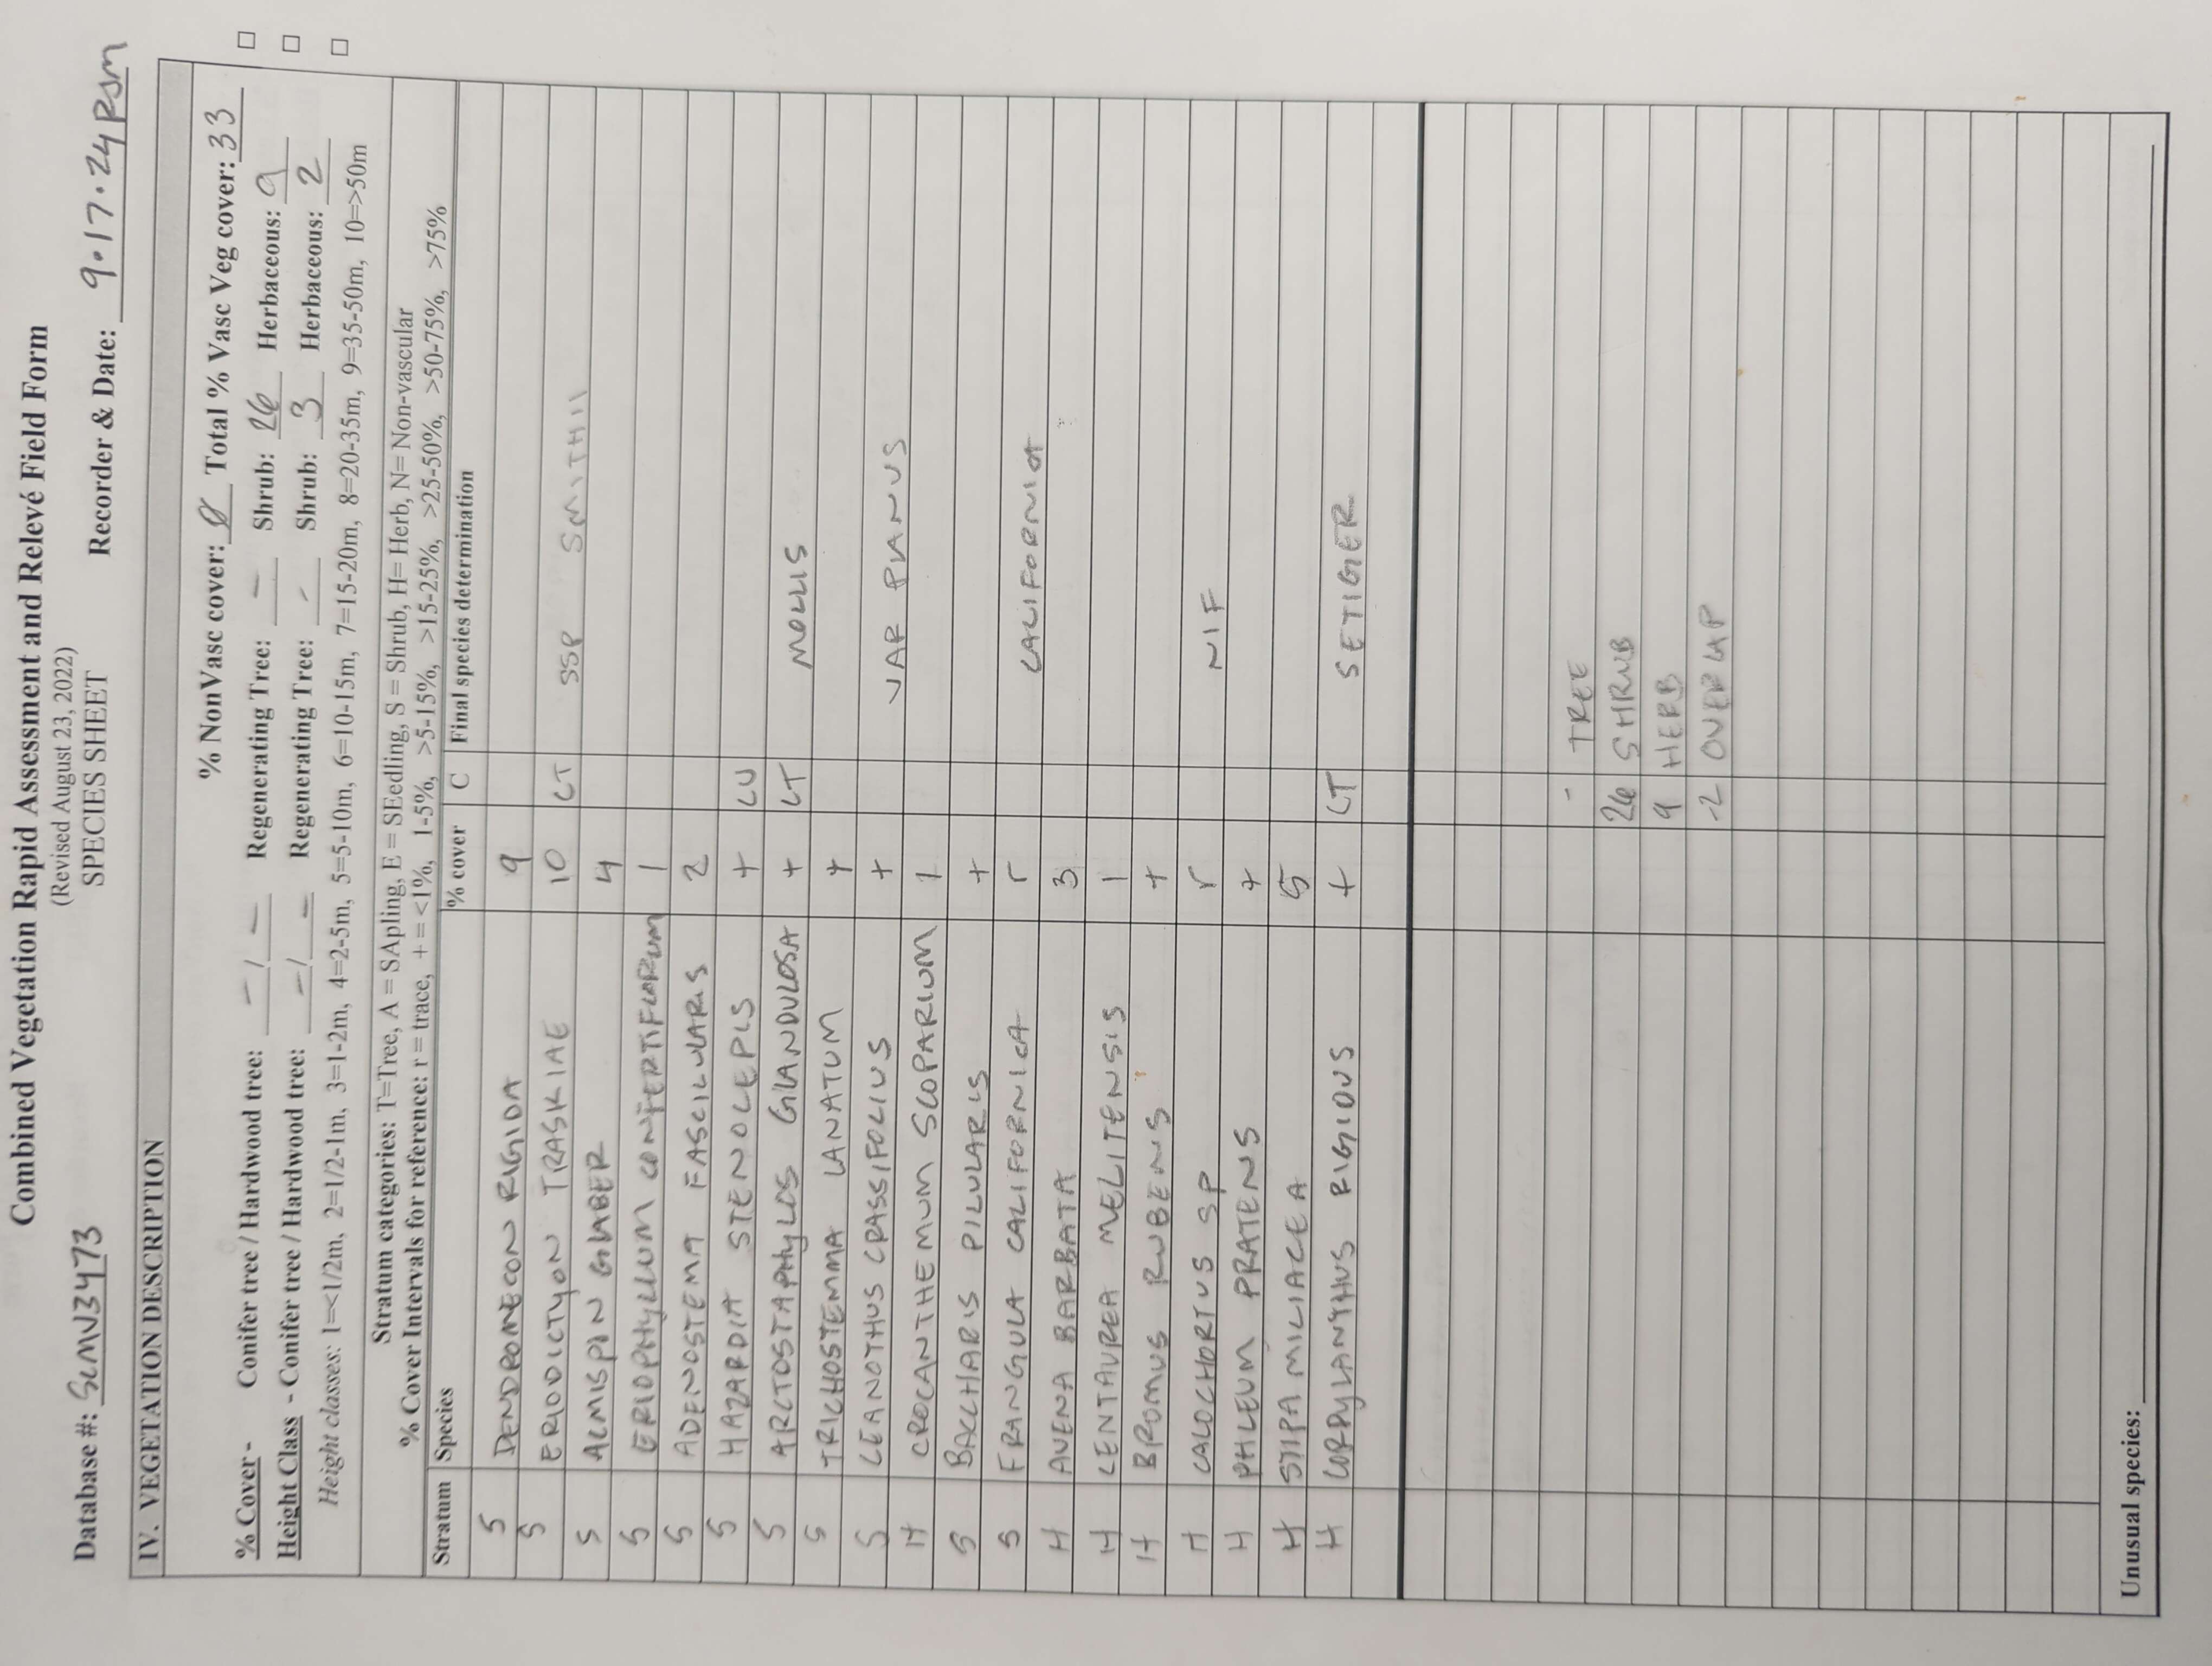 Combined Vegetation Rapid Assessment and Relevé Field Form
(Revised August 23, 2022)
SPECIES SHEET
Database #: SCMV3473 Recorder & Date: 9·17·24 RSM
IV. VEGETATION DESCRIPTION
% NonVasc cover: Ø Total % Vasc Veg cover: 33
% Cover - Conifer tree / Hardwood tree: - / - Regenerating Tree: - Shrub: 26 Herbaceous: 9
Height Class - Conifer tree / Hardwood tree: - / - Regenerating Tree: - Shrub: 3 Herbaceous: 2
Height classes: 1=<1/2m, 2=1/2-1m, 3=1-2m, 4=2-5m, 5=5-10m, 6=10-15m, 7=15-20m, 8=20-35m, 9=35-50m, 10=>50m
Stratum categories: T=Tree, A = SApling, E = SEedling, S = Shrub, H= Herb, N= Non-vascular
% Cover Intervals for reference: r = trace, + = <1%, 1-5%, >5-15%, >15-25%, >25-50%, >50-75%, >75%
Stratum Species % cover C Final species determination
S DENDROMECON RIGIDA 9
S ERIODICTYON TRASKIAE 10 CT SSP SMITHII
S ACMISPON GLABER 4
S ERIOPHYLLUM CONFERTIFLORUM 1
S ADENOSTEMA FASCICULARIS 2
S HAZARDIA STENOLEPIS + CU
S ARCTOSTAPHYLOS GLANDULOSA + CT MOLLIS
S TRICHOSTEMMA LANATUM +
S CEANOTHUS CRASSIFOLIUS + VAR PLANUS
H CROCANTHEMUM SCOPARIUM 1
S BACCHARIS PILULARIS +
S FRANGULA CALIFORNICA r CALIFORNICA
H AVENA BARBATA 3
H CENTAUREA MELITENSIS 1
H BROMUS RUBENS +
H CALOCHORTUS SP r NIF
H PHLEUM PRATENS +
H STIPA MILIACEA 5
H CORDYLANTHUS RIGIDUS + CT SETIGER
- TREE
26 SHRUB
9 HERB
-2 OVERLAP
Unusual species: